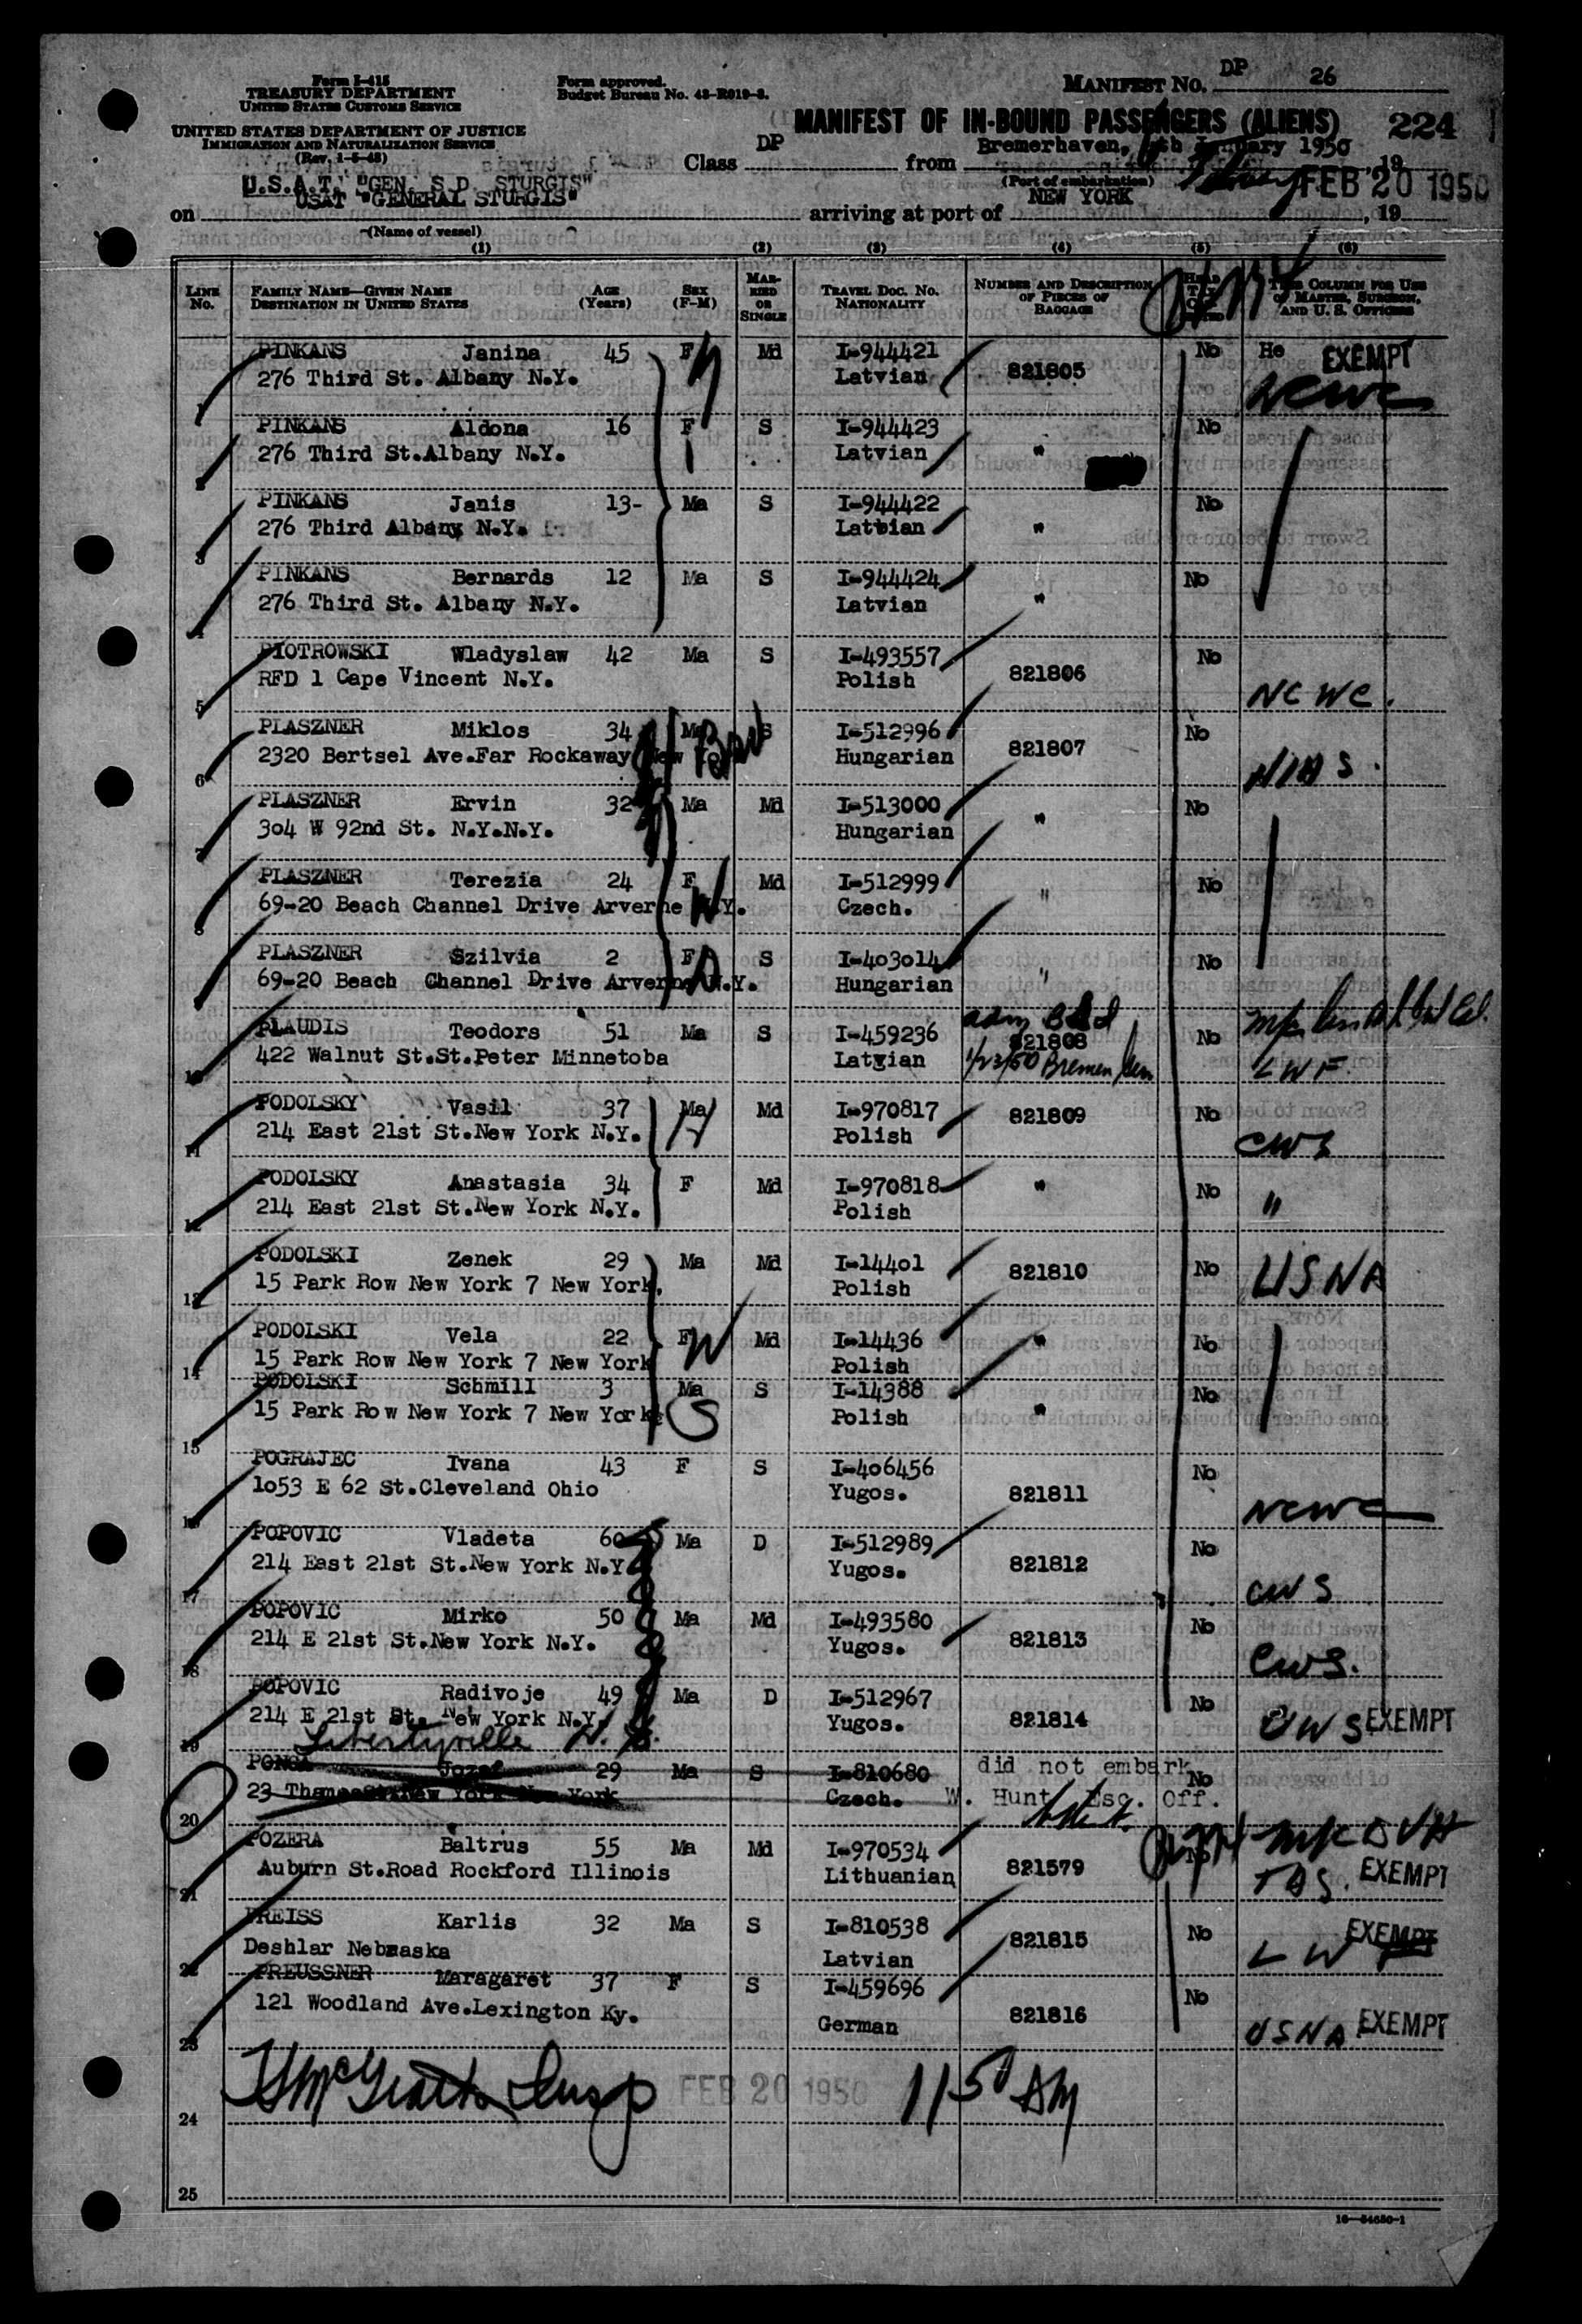 Form I-415
TREASURY DEPARTMENT
UNITED STATES CUSTOMS SERVICE
UNITED STATES DEPARTMENT OF JUSTICE
IMMIGRATION AND NATURALIZATION SERVICE
(Rev. 1-5-48)
Form approved.
Budget Bureau No. 43-R019-3.
MANIFEST NO. DP 26
MANIFEST OF IN-BOUND PASSENGERS (ALIENS) 224
Class DP from Bremerhaven, January 1950, 19
(Port of embarkation)
U.S.A.T. "GEN. S.D. STURGIS"
on USAT "GENERAL STURGIS" arriving at port of NEW YORK FEB 20 1950, 19
(Name of vessel)
(1) (2) (3) (4) (5) (6)
LINE NO. FAMILY NAME—GIVEN NAME DESTINATION IN UNITED STATES AGE (Years) SEX (F-M) MARRIED OR SINGLE TRAVEL DOC. NO. NATIONALITY NUMBER AND DESCRIPTION OF PIECES OF BAGGAGE THIS COLUMN FOR USE OF MASTER, SURGEON, AND U. S. OFFICERS
PINKANS Janina 45 F Md I-944421 821805 No He EXEMPT
1 276 Third St. Albany N.Y. Latvian NCWC
PINKANS Aldona 16 F S I-944423 " No
2 276 Third St.Albany N.Y. Latvian
PINKANS Janis 13- Ma S I-944422 " No
3 276 Third Albany N.Y. Latvian
PINKANS Bernards 12 Ma S I-944424 " No
4 276 Third St. Albany N.Y. Latvian
PIOTROWSKI Wladyslaw 42 Ma S I-493557 821806 No
5 RFD 1 Cape Vincent N.Y. Polish NCWC.
PLASZNER Miklos 34 Ma S I-512996 821807 No
6 2320 Bertsel Ave.Far Rockaway New Hungarian HIAS.
PLASZNER Ervin 32 Ma Md I-513000 " No
7 304 W 92nd St. N.Y.N.Y. Hungarian
PLASZNER Terezia 24 F Md I-512999 " No
8 69-20 Beach Channel Drive Arverne N.Y. Czech.
PLASZNER Szilvia 2 F S I-403014 " No
9 69-20 Beach Channel Drive Arverne N.Y. Hungarian
PLAUDIS Teodors 51 Ma S I-459236 821808 No
10 422 Walnut St.St.Peter Minnetoba Latvian 1/23/50 Bremen LWF.
PODOLSKY Vasil 37 Ma Md I-970817 821809 No
11 214 East 21st St.New York N.Y. Polish CWS
PODOLSKY Anastasia 34 F Md I-970818 " No "
12 214 East 21st St.New York N.Y. Polish
PODOLSKI Zenek 29 Ma Md I-14401 821810 No USNA
13 15 Park Row New York 7 New York. Polish
PODOLSKI Vela 22 F Md I-14436 " No
14 15 Park Row New York 7 New York Polish
PODOLSKI Schmill 3 Ma S I-14388 " No
15 15 Park Row New York 7 New York Polish
POGRAJEC Ivana 43 F S I-406456 821811 No
16 1o53 E 62 St.Cleveland Ohio Yugos. NCWC
POPOVIC Vladeta 60 Ma D I-512989 821812 No
17 214 East 21st St.New York N.Y. Yugos. CWS
POPOVIC Mirko 50 Ma Md I-493580 821813 No
18 214 E 21st St.New York N.Y. Yugos. CWS.
POPOVIC Radivoje 49 Ma D I-512967 821814 No
19 214 E 21st St. New York N.Y. Yugos. CWS EXEMPT
Libertyville
Jozef 29 Ma S I-810680 did not embark No
20 23 New York New York Czech. W. Hunt, Esc. Off.
POZERA Baltrus 55 Ma Md I-970534 821579
21 Auburn St.Road Rockford Illinois Lithuanian EXEMPT
PREISS Karlis 32 Ma S I-810538 821815 No EXEMPT
22 Deshlar Nebraska Latvian LWF
PREUSSNER Maragaret 37 F S I-459696 821816 No
23 121 Woodland Ave.Lexington Ky. German USNA EXEMPT
Insp FEB 20 1950 11 50 AM
24
25
16—54650-1